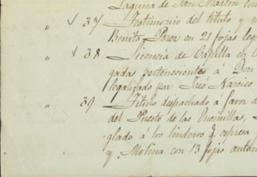 Laguna de San Martin
" 37 Testimonio del titulo y
Benito Perez en 21 fojas
" 38 Licencia de Capilla en
gadas pertenecientes á Don
legalizado por
" 39 Titulo despachado á favor
del Puesto de las
glado, á los linderos q. espresa
y Molina con 13 fojas